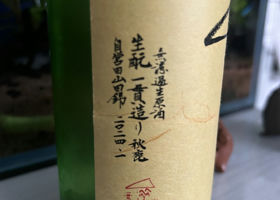 無濾過生原酒
生酛 一貫造り 秋鹿
自営田山田錦 二〇二四.一